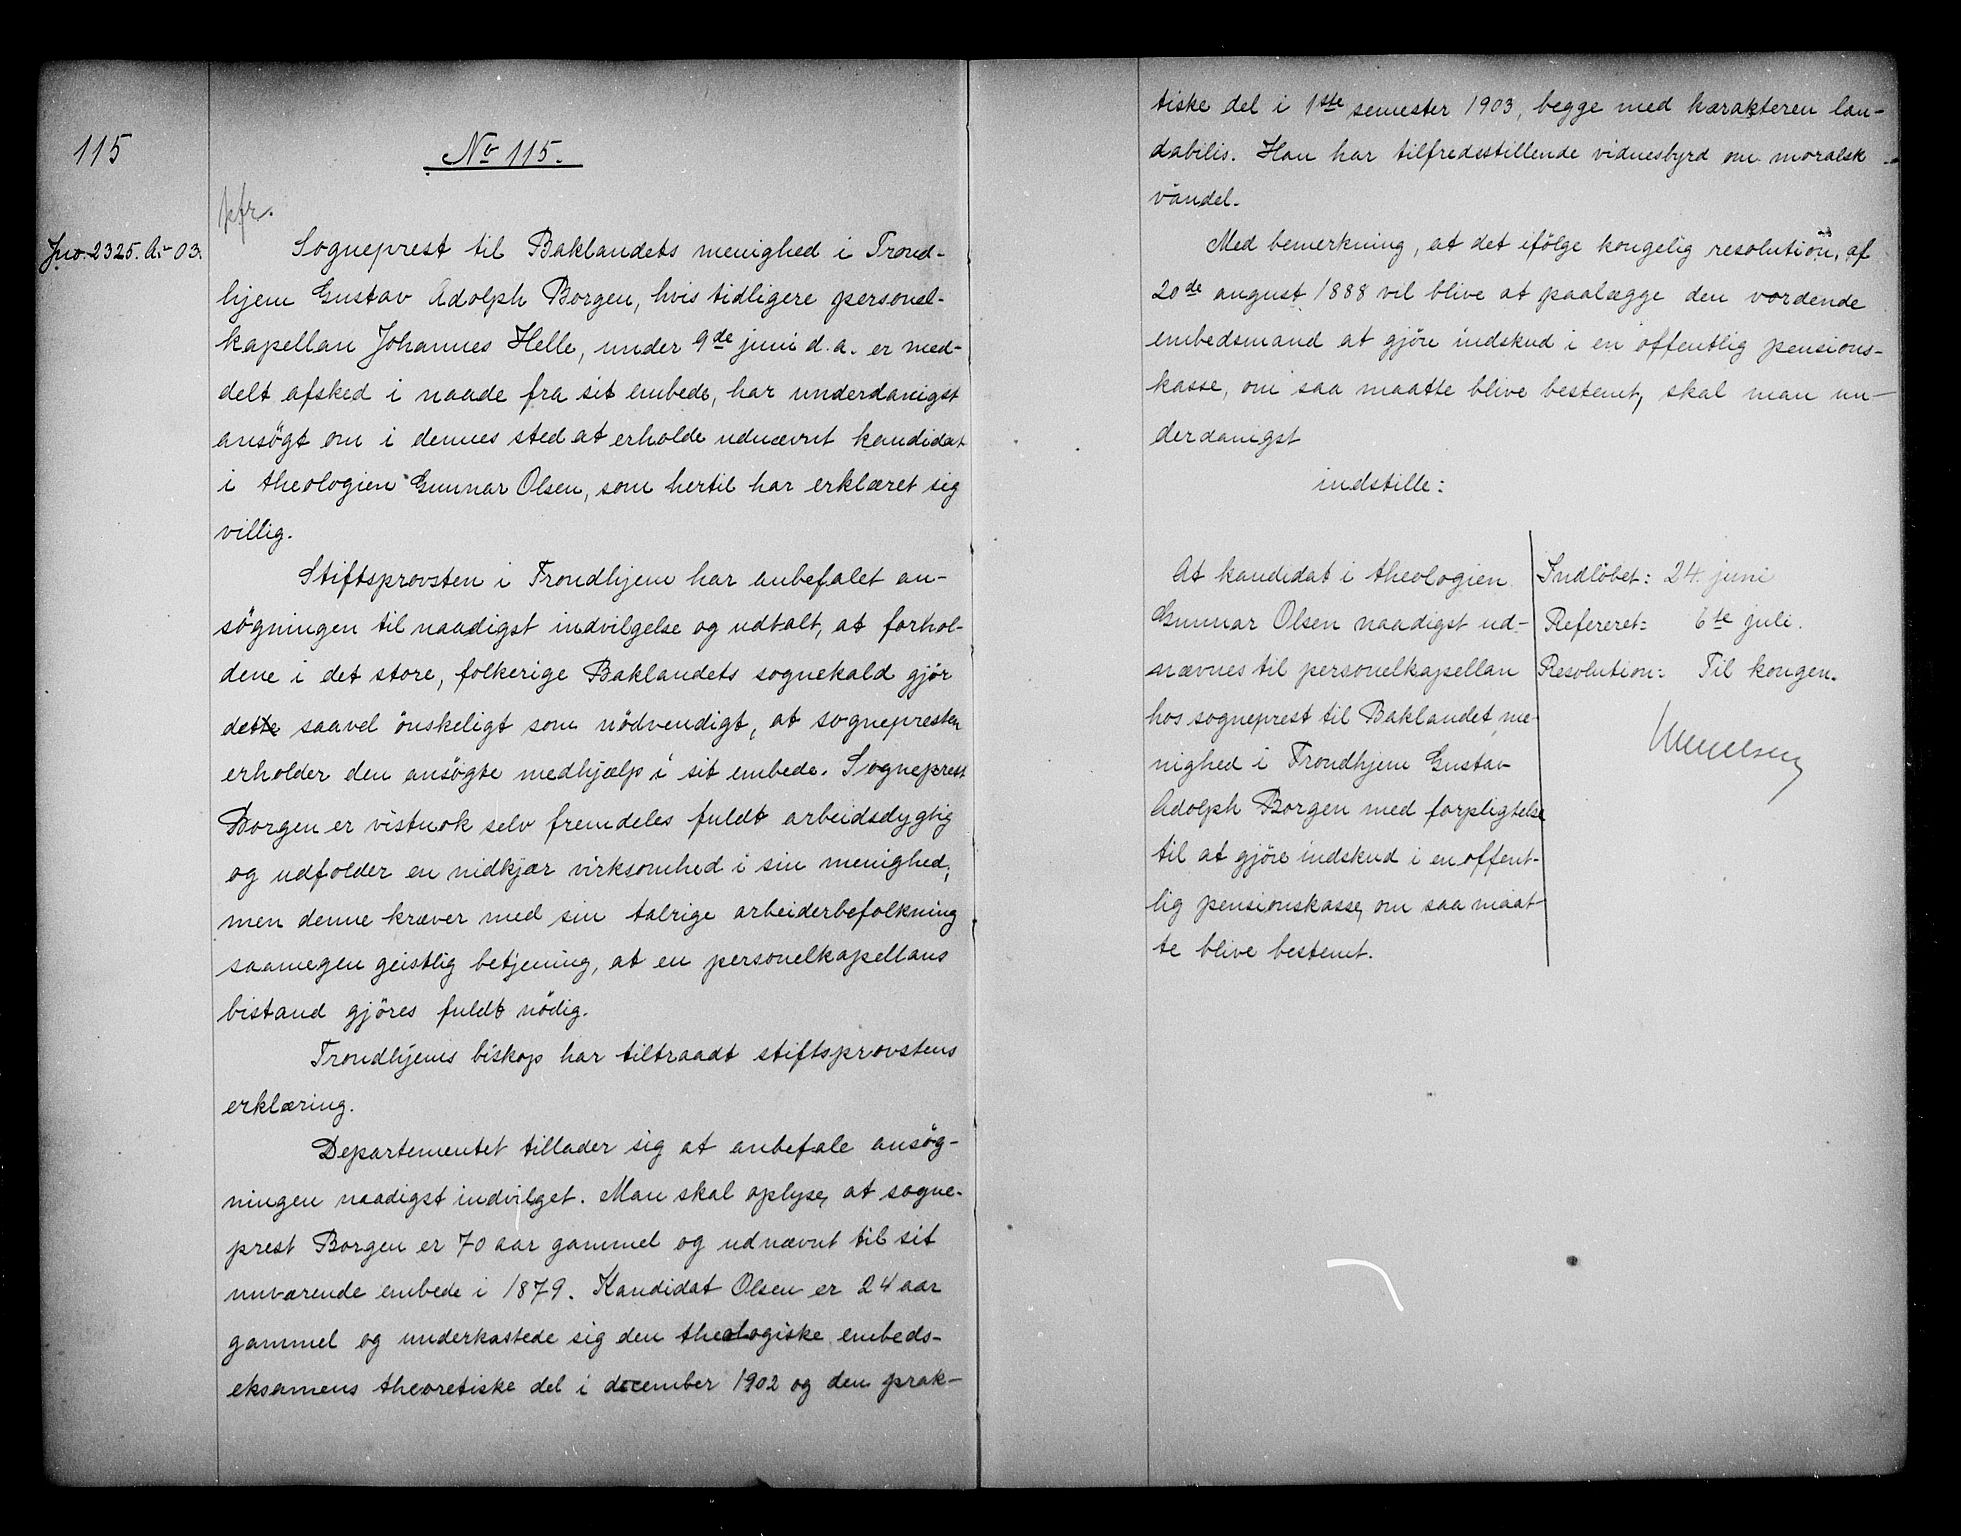 115
No 115.
pfr.
Jno. 2325. A - 03.
Sogneprest til Baklandets menighed i Trond-
hjem Gustav Adolph Borgen, hvis tidligere personel-
kapellan Johannes Helle, under 9de juni d.a. er med-
delt afsked i naade fra sit embede, har underdanigst
ansögt om i dennes sted at erholde udnævnt kandidat
i theologien Gunnar Olsen, som hertil har erklæret sig
villig.
Stiftsprovsten i Trondhjem har anbefalet an-
sögningen til naadigst indvilgelse og udtalt, at forhol-
dene i det store, folkerige Baklandets sognekald gjör
dette saavel önskeligt som nödvendigt, at sognepresten
erholder den ansögte medhjælp i sit embede. Sogneprest
Borgen er vistnok selv fremdeles fuldt arbeidsdygtig
og udfolder en nidkjær virksomhed i sin menighed;
men denne kræver med sin talrige arbeiderbefolkning
saamegen geistlig betjening, at en personelkapellans
bistand gjöres fuldt nödig.
Trondhjems biskop har tiltraadt stiftsprovstens
erklæring.
Departementet tillader sig at anbefale ansög-
ningen naadigst indvilget. Man skal oplyse, at sogne-
prest Borgen er 70 aar gammel og udnævnt til sit
nuværende embede i 1879. Kandidat Olsen er 24 aar
gammel og underkastede sig den theologiske embeds-
eksamens theoretiske del i december 1902 og den prak-
tiske del i 1ste semester 1903, begge med karakteren lau-
dabilis. Han har tilfredsstillende vidnesbyrd om moralsk
vandel.
Med bemerkning, at det ifölge kongelig resolution af
20de august 1888 vil blive at paalægge den vordende
embedsmand at gjöre indskud i en offentlig pensions-
kasse, om saa maatte blive bestemt, skal man un-
derdanigst
indstille:
At kandidat i theologien
Gunnar Olsen naadigst ud-
nævnes til personelkapellan
hos sogneprest til Baklandet me-
nighed i Trondhjem Gustav
Adolph Borgen med forpligtelse
til at gjöre indskud i en offent-
lig pensionskasse, om saa maat-
te blive bestemt.
Indlöbet: 24. juni
Refereret: 6te juli.
Resolution: Til kongen.